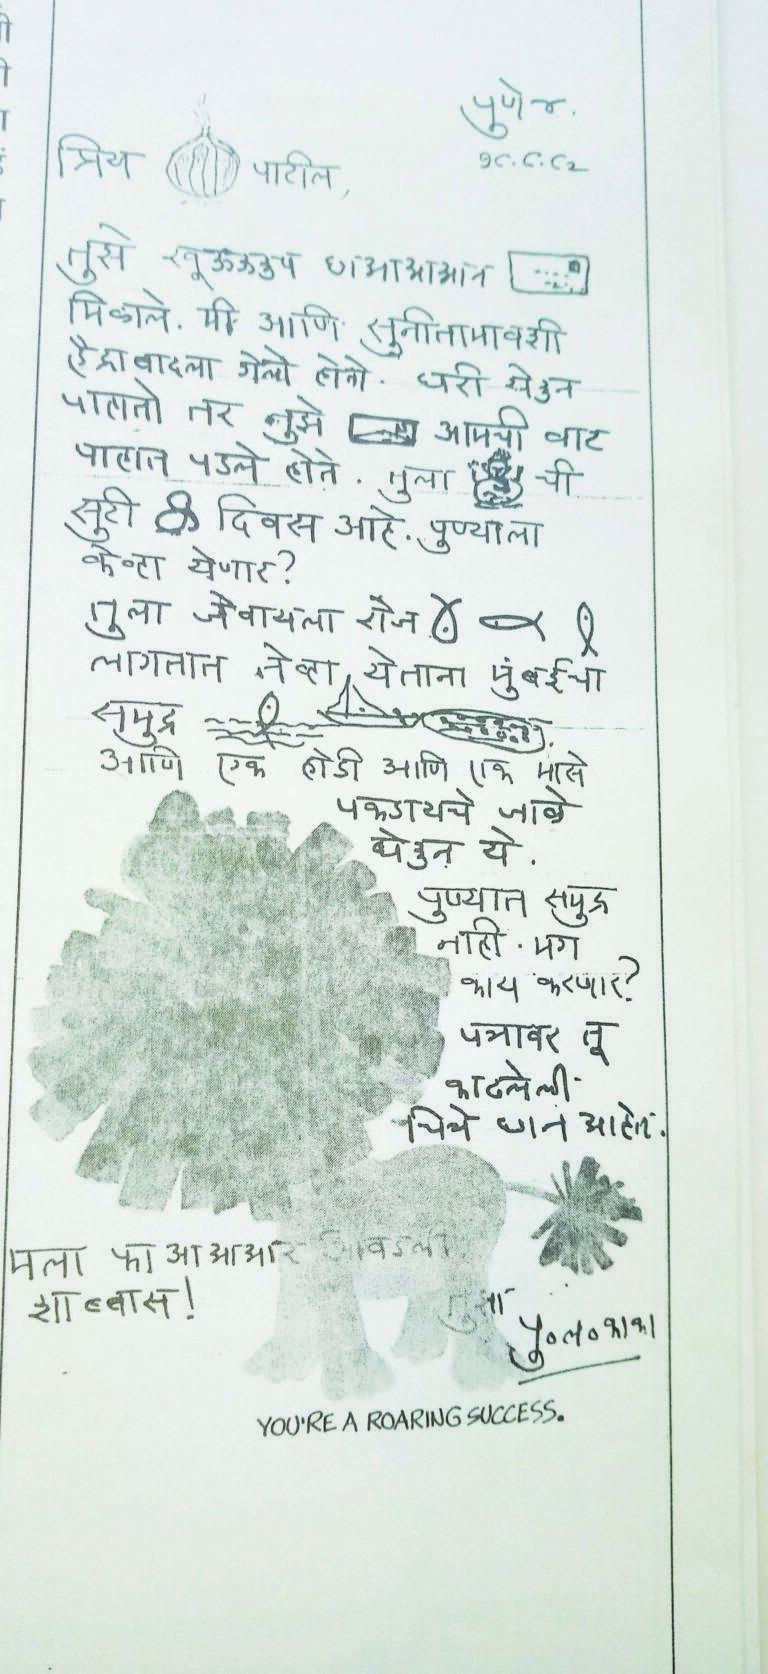 पुणे ४.
१८.८.८२
प्रिय पाटील,
तुझे खूऊऊऊप छाआआआआन
मिळाले. मी आणि सुनीतामावशी
हैद्राबादला गेलो होतो. घरी येऊन
पाहातो तर तुझे आमची वाट
पाहात पडले होते. तुला ची
सुटी 8 दिवस आहे. पुण्याला
केव्हा येणार?
तुला जेवायला रोज
लागतात तेव्हा येताना मुंबईचा
समुद्र
आणि एक होडी आणि एक मासे
पकडायचे जाळे
घेऊन ये.
पुण्यात समुद्र
नाही. मग
काय करणार?
पत्रावर तू
काढलेली
चित्रे छान आहेत.
मला फाआआआआर आवडली.
शाब्बास!
तुझा
पु०ल०काका
YOU'RE A ROARING SUCCESS.